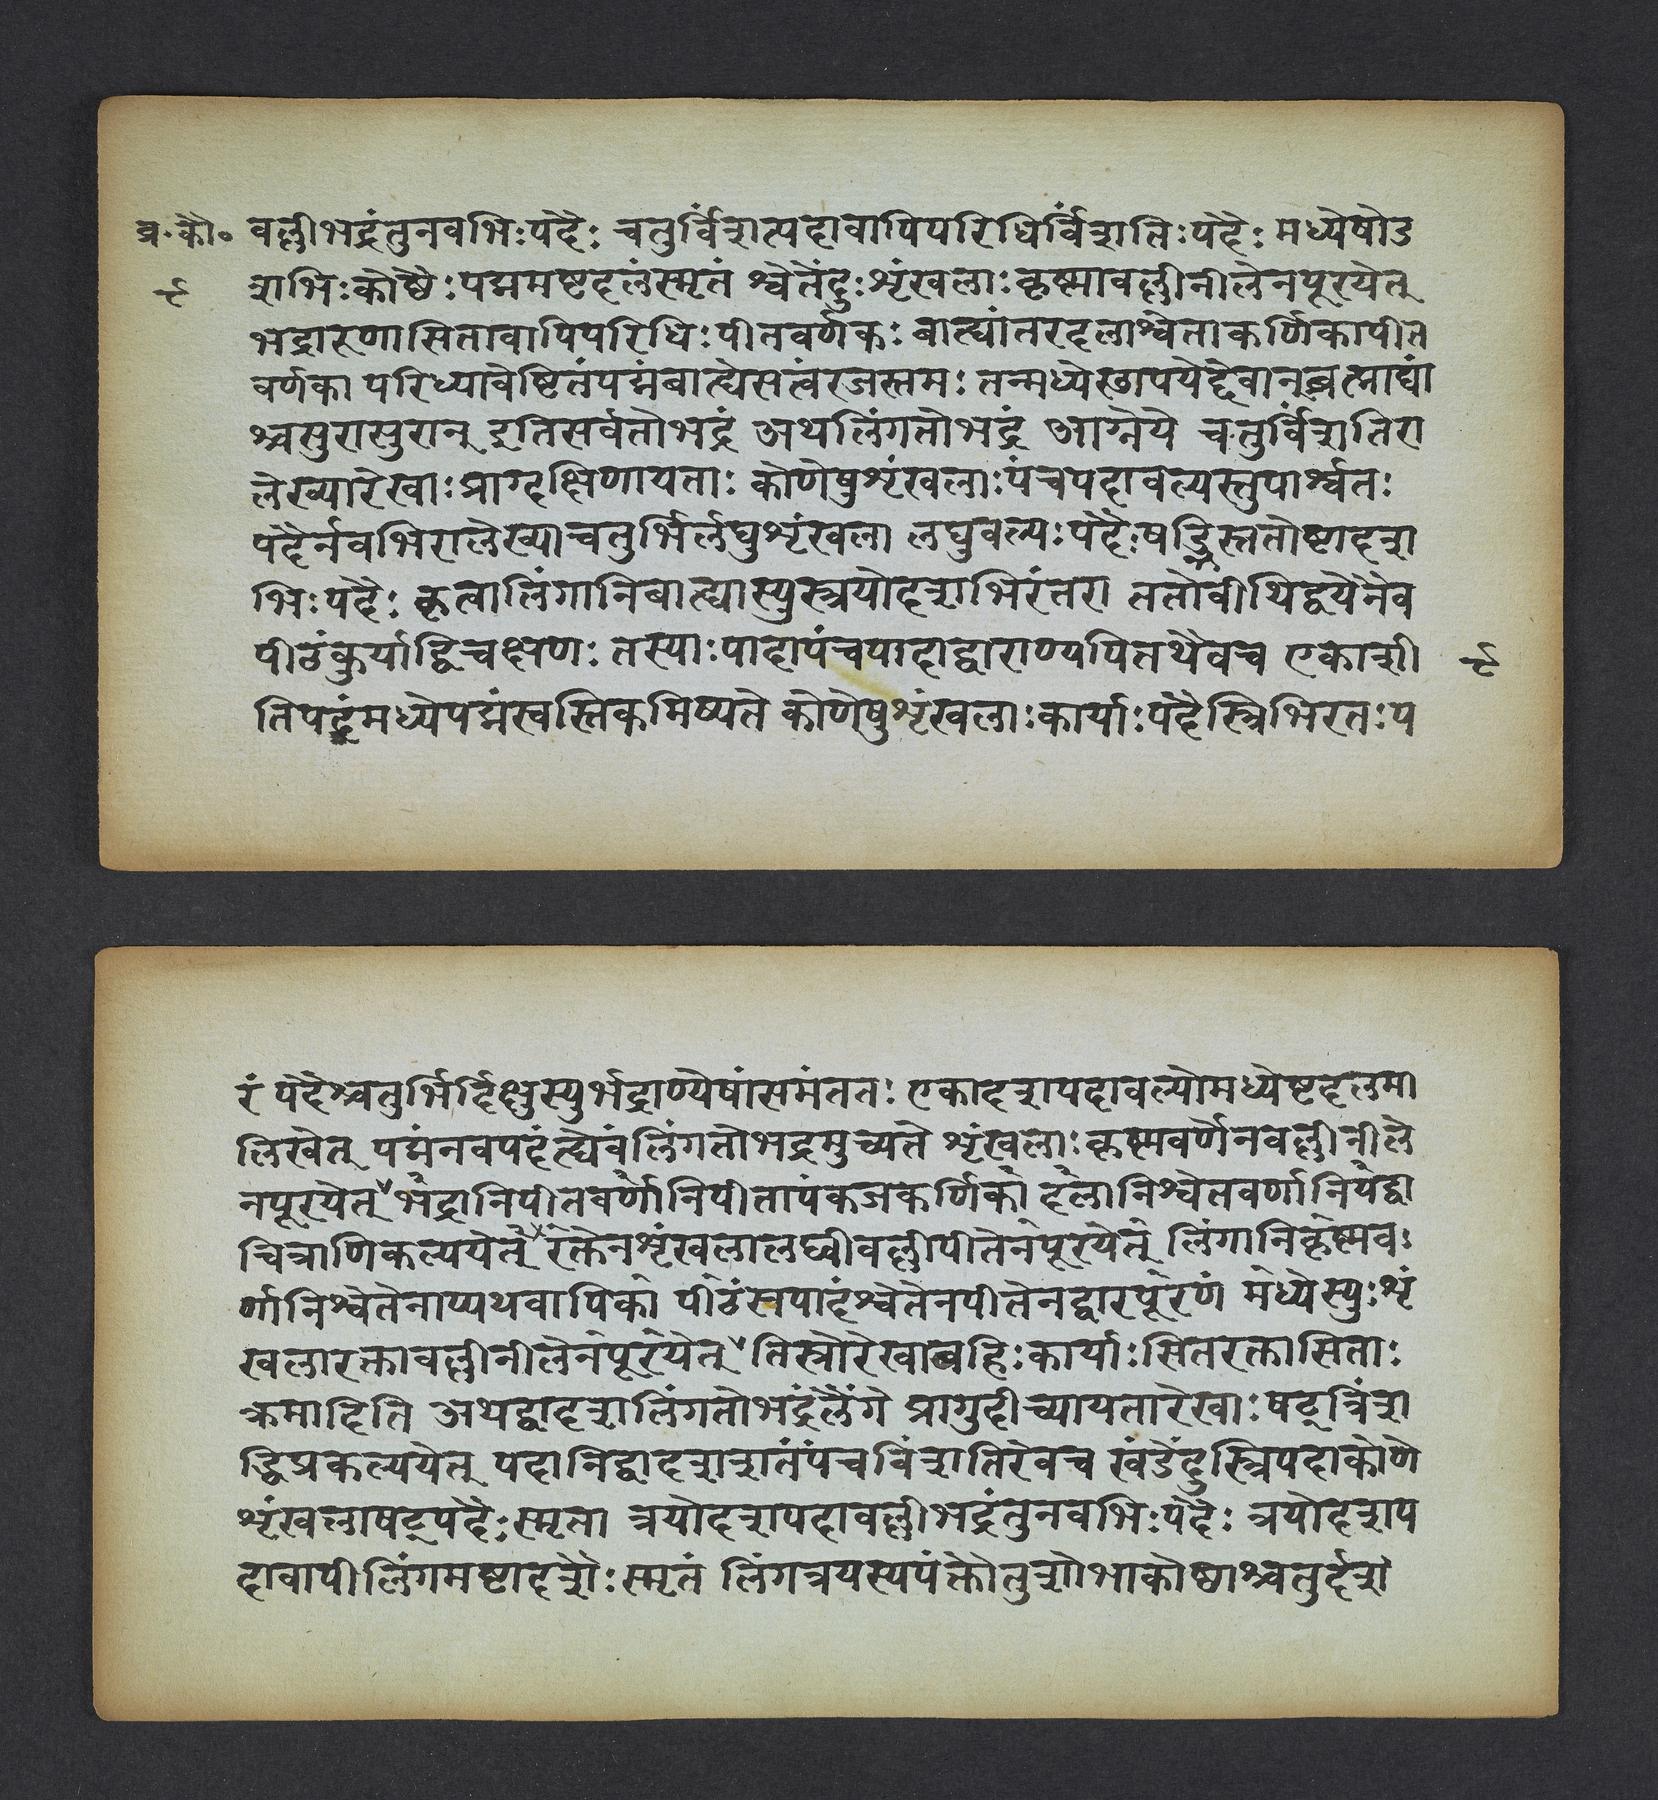 व्र.कौ॰ वल्लीभद्रंतुनवभिःपदैः चतुर्विंशत्पदावापिपरिधिर्विंशतिःपदैः मध्येषोड
९ शभिःकोष्ठैःपद्ममष्टदलंस्मृतं श्वेतेंदुःशृंखलाःकृष्णावल्लीनीलेनपूरयेत्
भद्रारुणासितावापिपरिधिःपीतवर्णकः बाह्यांतरदलाश्वेताकर्णिकापीत
वर्णका परिध्यावेष्टितंपद्मंबाह्येसत्वंरजस्तमः तन्मध्येस्थापयेद्देवान्ब्रह्माद्यां
श्चसुरासुरान् इतिसर्वतोभद्रं अथलिंगतोभद्रं आग्नेये चतुर्विंशतिरा
लेख्यारेखाःप्राग्दक्षिणायताः कोणेषुशृंखलाःपंचपदावल्यस्तुपार्श्वतः
पदैर्नवभिरालेख्याचतुर्भिर्लघुशृंखला लघुवल्यःपदैःषड्भिस्ततोष्टादश
भिःपदैः कृत्वालिंगानिबाह्यास्युस्त्रयोदशभिरंतरा ततोवीथिद्वयेनैव
पीठंकुर्याद्विचक्षणः तस्याःपादापंचपादाद्वाराण्यपितथैवच एकाशी ९
तिपदंमध्येपद्मंस्वस्तिकमिष्यते कोणेषुशृंखलाःकार्याःपदैस्त्रिभिरतःप
रं पदैश्चतुर्भिर्दिक्षुस्युर्भद्राण्येषांसमंततः एकादशपदावल्योमध्येष्टदलमा
लिखेत् पद्मंनवपदंह्येवंलिंगतोभद्रमुच्यते शृंखलाःकृष्णवर्णेनवल्लीनीले
नपूरयेत् भद्रानिपीतवर्णानिपीतापंकजकर्णिका दलानिश्वेतवर्णानियद्वा
चित्राणिकल्पयेत् रक्तेनशृंखलालघ्वीवल्लीपीतेनपूरयेत् लिंगानिकृष्णव
र्णानिश्वेतेनाप्यथवापिका पीठंसपादंश्वेतेनपीतेनद्वारपूरणं मध्येस्युःशृं
खलारक्तावल्लीनीलेनपूरयेत् तिस्त्रोरेखाबहिःकार्याःसितरक्तासिताः
क्रमादिति अथद्वादशलिंगतोभद्रंलैंगे प्रागुदीच्यायतारेखाःषट्त्रिंश
द्धिप्रकल्पयेत् पदानिद्वादशशतंपंचविंशतिरेवच खंडेंदुस्त्रिपदाकोणे
शृंखलाषट्पदैःस्मृता त्रयोदशपदावल्लीभद्रंतुनवभिःपदैः त्रयोदशप
दावापीलिंगमष्टादशैःस्मृतं लिंगत्रयस्यपंक्तौतुशोभाकोष्ठाश्चतुर्दश